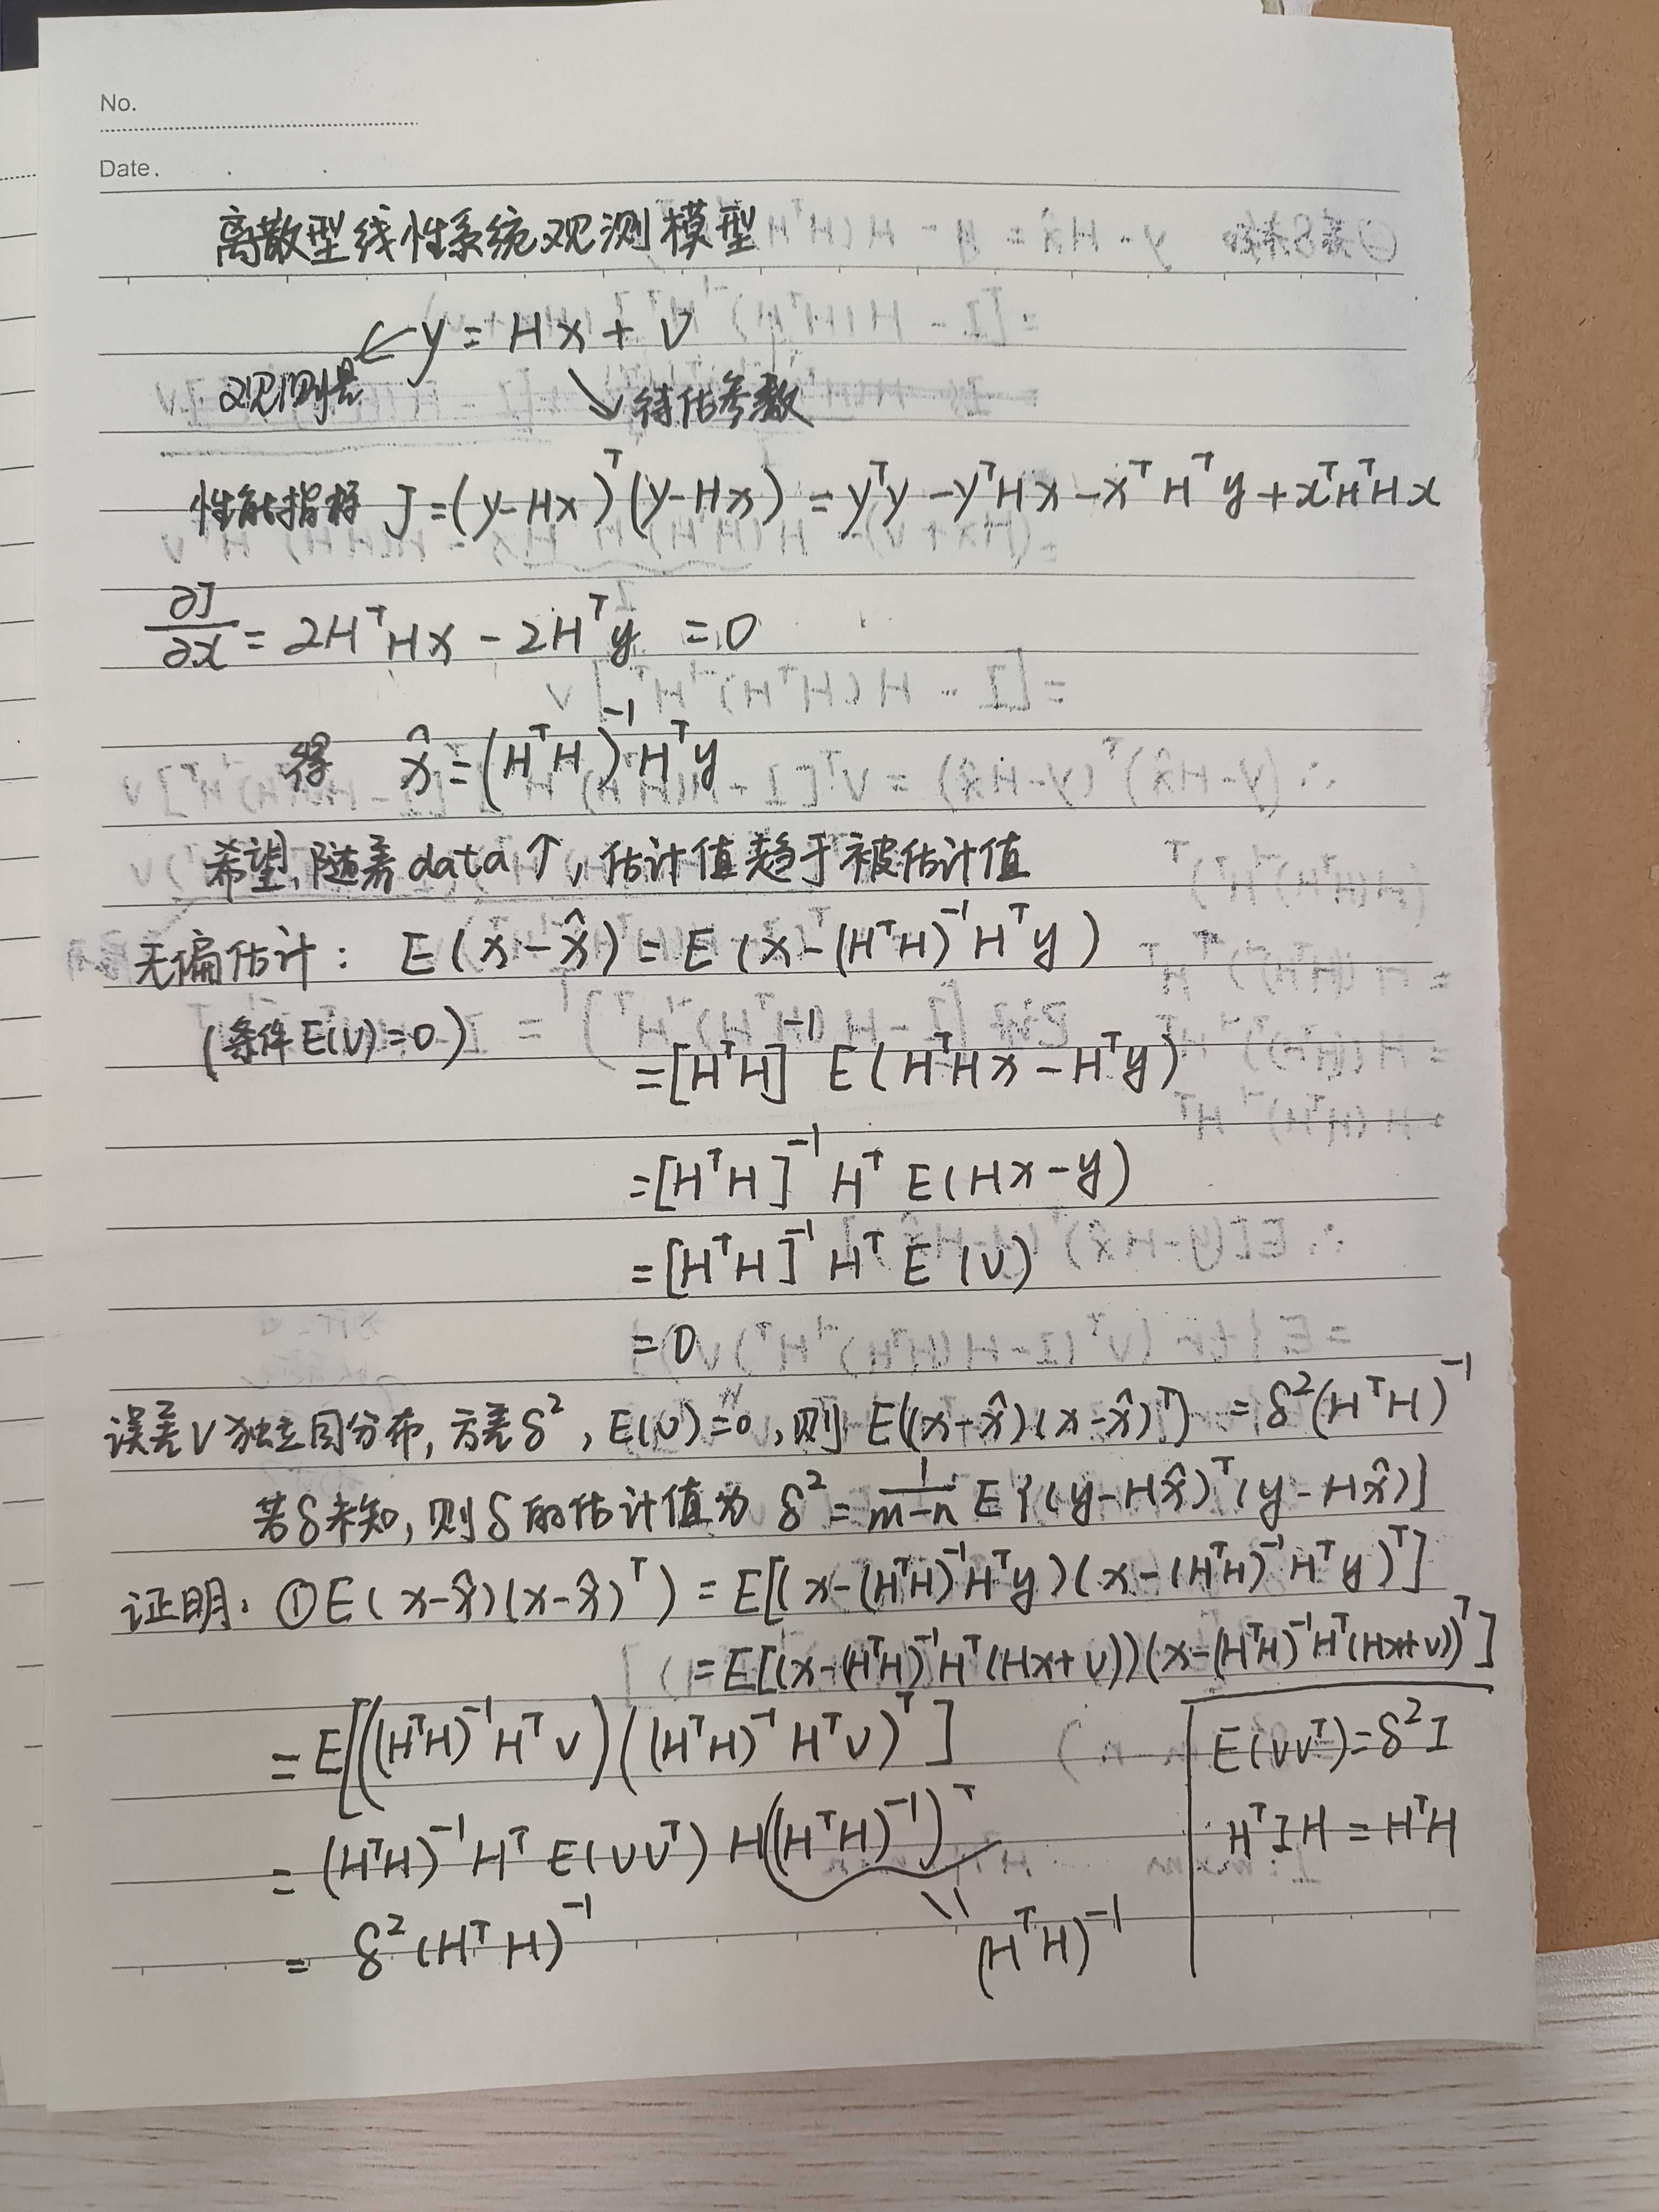 No.
Date.
离散型线性系统观测模型
y = Hx + v
观测量
待估参数
性能指标 J=(y-Hx)ᵀ(y-Hx) = yᵀy - yᵀHx - xᵀHᵀy + xᵀHᵀHx
∂J/∂x = 2HᵀHx - 2Hᵀy = 0
得 x̂ = (HᵀH)⁻¹Hᵀy
希望,随着data↑,估计值趋于被估计值
无偏估计: E(x-x̂) = E(x-(HᵀH)⁻¹Hᵀy)
(条件E(v)=0)
=[HᵀH]⁻¹ E(HᵀHx-Hᵀy)
=[HᵀH]⁻¹ Hᵀ E(Hx-y)
=[HᵀH]⁻¹ Hᵀ E(v)
= 0
误差v独立同分布,方差δ², E(v)=0,则 E((x-x̂)(x-x̂)ᵀ) = δ²(HᵀH)⁻¹
若δ未知,则δ的估计值为 δ² = 1/(m-n) E{(y-Hx̂)ᵀ(y-Hx̂)}
证明: ①E(x-x̂)(x-x̂)ᵀ) = E[(x-(HᵀH)⁻¹Hᵀy)(x-(HᵀH)⁻¹Hᵀy)ᵀ]
=E[(x-(HᵀH)⁻¹Hᵀ(Hx+v))(x-(HᵀH)⁻¹Hᵀ(Hx+v))ᵀ]
= E[((HᵀH)⁻¹Hᵀv)((HᵀH)⁻¹Hᵀv)ᵀ]
E(vvᵀ)=δ²I
= (HᵀH)⁻¹Hᵀ E(vvᵀ) H((HᵀH)⁻¹)ᵀ
HᵀIH = HᵀH
= δ²(HᵀH)⁻¹
(HᵀH)⁻¹